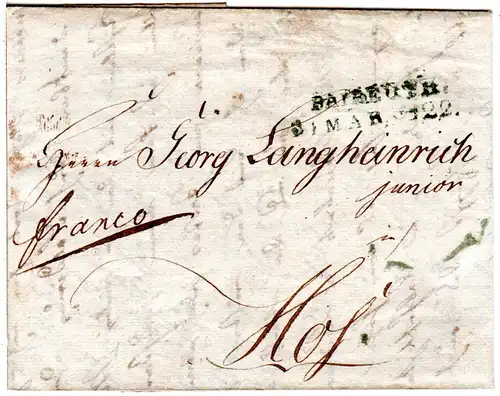 BAIREUTH.
31 MAR. 1822.
Herrn Georg Langheinrich
junior
franco
in
Hof.